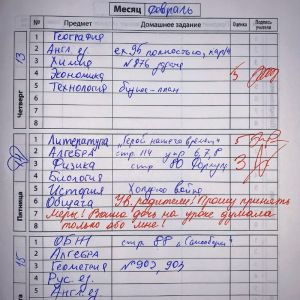 Месяц февраль
№ Предмет Домашнее задание Оценка Подпись учителя
13 Четверг
1 География
2 Англ. яз. стр. 95 полностью,
3 Химия № 876
4 Экономика
5 Технология бизнес-план
Пятница
1 Литература „Герой нашего времени" 5
2 Алгебра стр. 114 упр 6, 7, 8
3 Физика стр 80 Формулы 3
4 Биология
5 История Холодная война
6 Общага Ув. родители! Прошу принять
7 меры! Ваша дочь на уроке думала
8 только обо мне!
15
1 ОБЖ стр 88
2 Алгебра
3 Геометрия № 902, 903
4 Рус. яз
5 Англ. яз